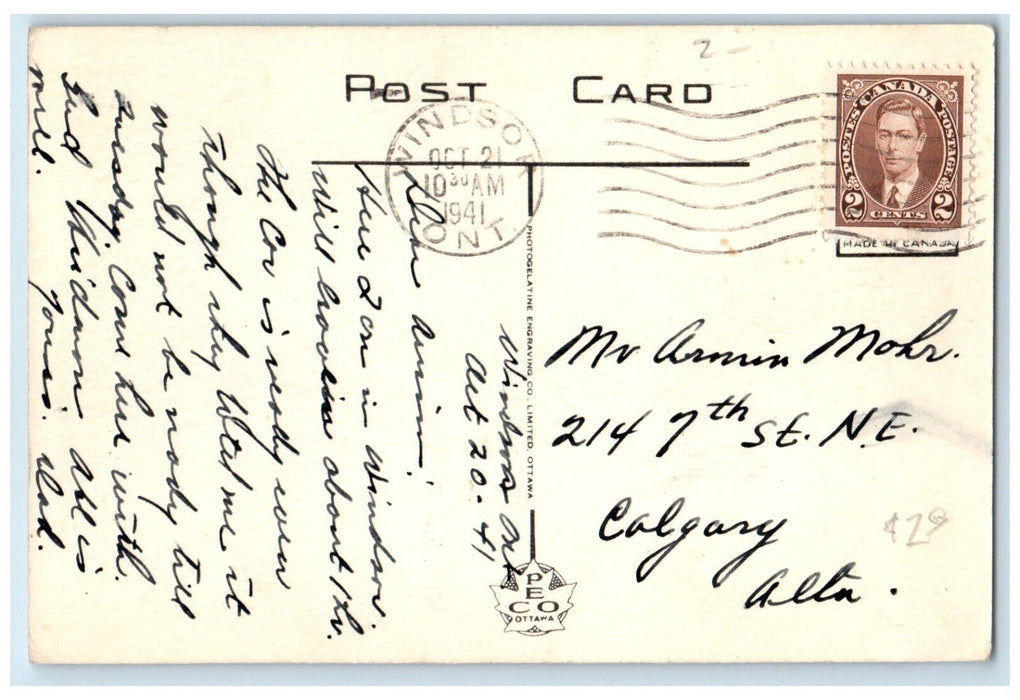 2-
POST CARD
WINDSOR
OCT 21
10 30 AM
1941
ONT.
CANADA
POSTES POSTAGE
2 CENTS 2
MADE IN CANADA
PHOTOGELATINE ENGRAVING CO. LIMITED, OTTAWA
PECO
OTTAWA
Windsor Ont
Oct 20 - 41
Dear Armin!
Here I am in Windsor.
Will leave about 1 hr.
The Car is ready even
Though they told me it
would not be ready till
Tuesday. Come here with
Gus Thiedman All is
well. Yours. Dad.
Mr Armin Mohr.
214 7th St. N.E.
Calgary
Alta.